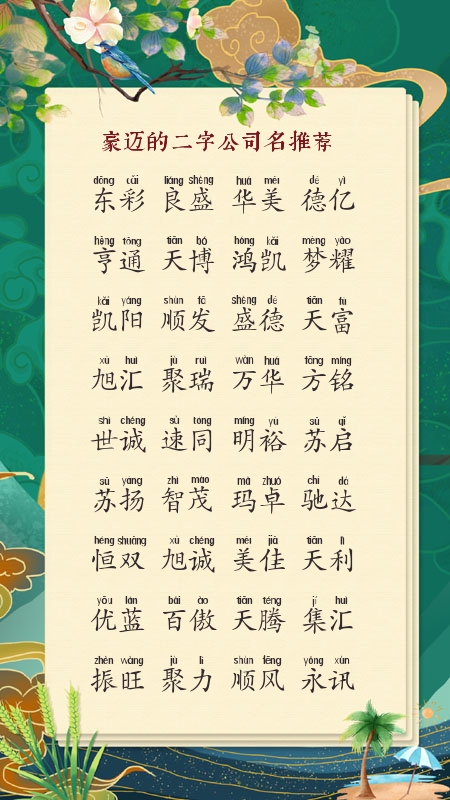 豪迈的二字公司名推荐
dōng cǎi liáng shèng huá měi dé yì
东彩 良盛 华美 德亿
hēng tōng tiān bó hóng kǎi mèng yào
亨通 天博 鸿凯 梦耀
kǎi yáng shùn fā shèng dé tiān fù
凯阳 顺发 盛德 天富
xù huì jù ruì wàn huá fāng míng
旭汇 聚瑞 万华 方铭
shì chéng sù tóng míng yù sū qǐ
世诚 速同 明裕 苏启
sū yáng zhì mào mǎ zhuó chí dá
苏扬 智茂 玛卓 驰达
héng shuāng xù chéng měi jiā tiān lì
恒双 旭诚 美佳 天利
yōu lán bǎi ào tiān téng jí huì
优蓝 百傲 天腾 集汇
zhèn wàng jù lì shùn fēng yǒng xùn
振旺 聚力 顺风 永讯